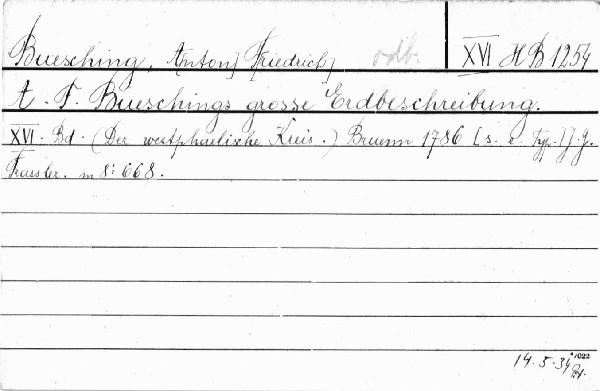 Buesching, Anton] Friedrich] odb. XVI HB 1254
A. F. Bueschings grosse Erdbeschreibung.
XVI. Bd. (Der westphaelische Kreis.) Bruenn 1786 [s. e. Typ.] J. G.
Trassler. m 8: 668.
14.5.34